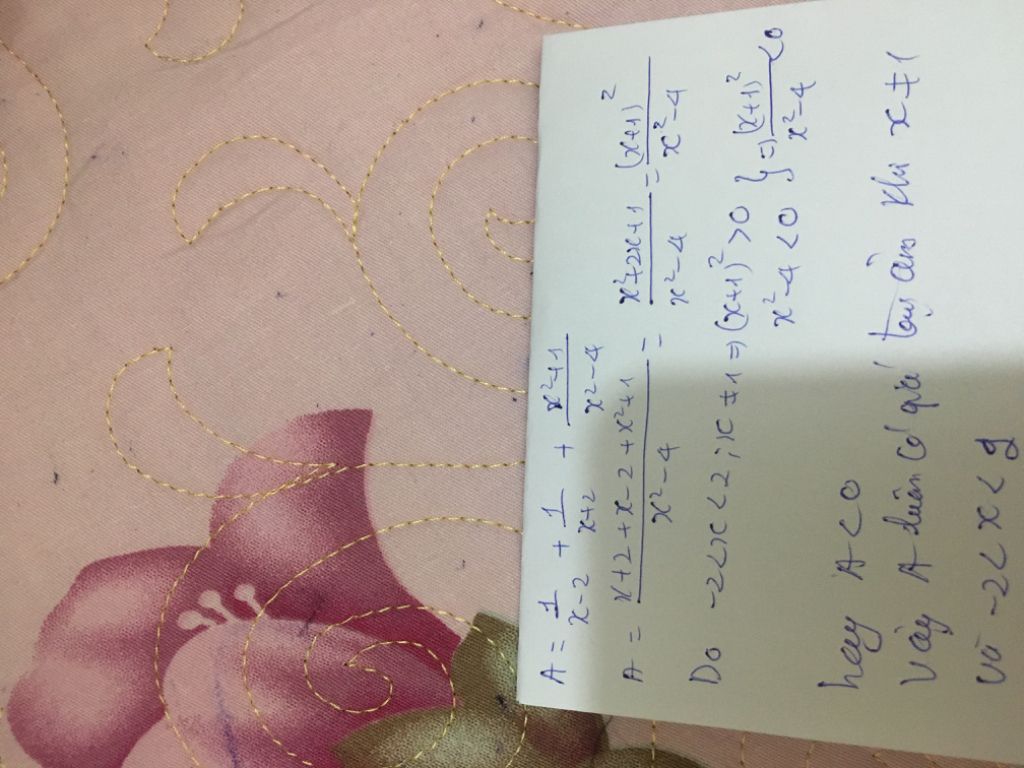 A = 1/(x-2) + 1/(x+2) + (x²+1)/(x²-4)
A = (x+2+x-2+x²+1)/(x²-4) = (x²+2x+1)/(x²-4) = (x+1)²/(x²-4)
Do -2<x<2; x≠1 => (x+1)² > 0 } => (x+1)²/(x²-4) < 0
x²-4 < 0
hay A < 0
Vậy A luôn có giá trị âm khi x ≠ 1
và -2 < x <